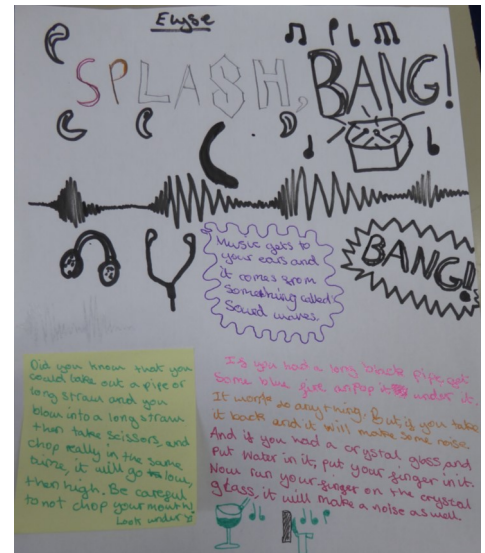 Elyse
SPLASH, BANG!
Music gets to
your ears and
it comes from
something called
Sound waves.
BANG!!
Did you know that you
could take out a pipe or
long straw and you
blow into a long straw
then take scissors, and
chop really in the same
tune, it will go low,
then high. Be careful
to not chop your mouth.
Look under
If you had a long black pipe, get
Some blue fire and pop it under it.
It wont do anything. But, if you take
it back and it will make some noise
And if you had a crystal glass, and
Put water in it, put your finger in it.
Now run your finger on the crystal
glass, it will make a noise as well.